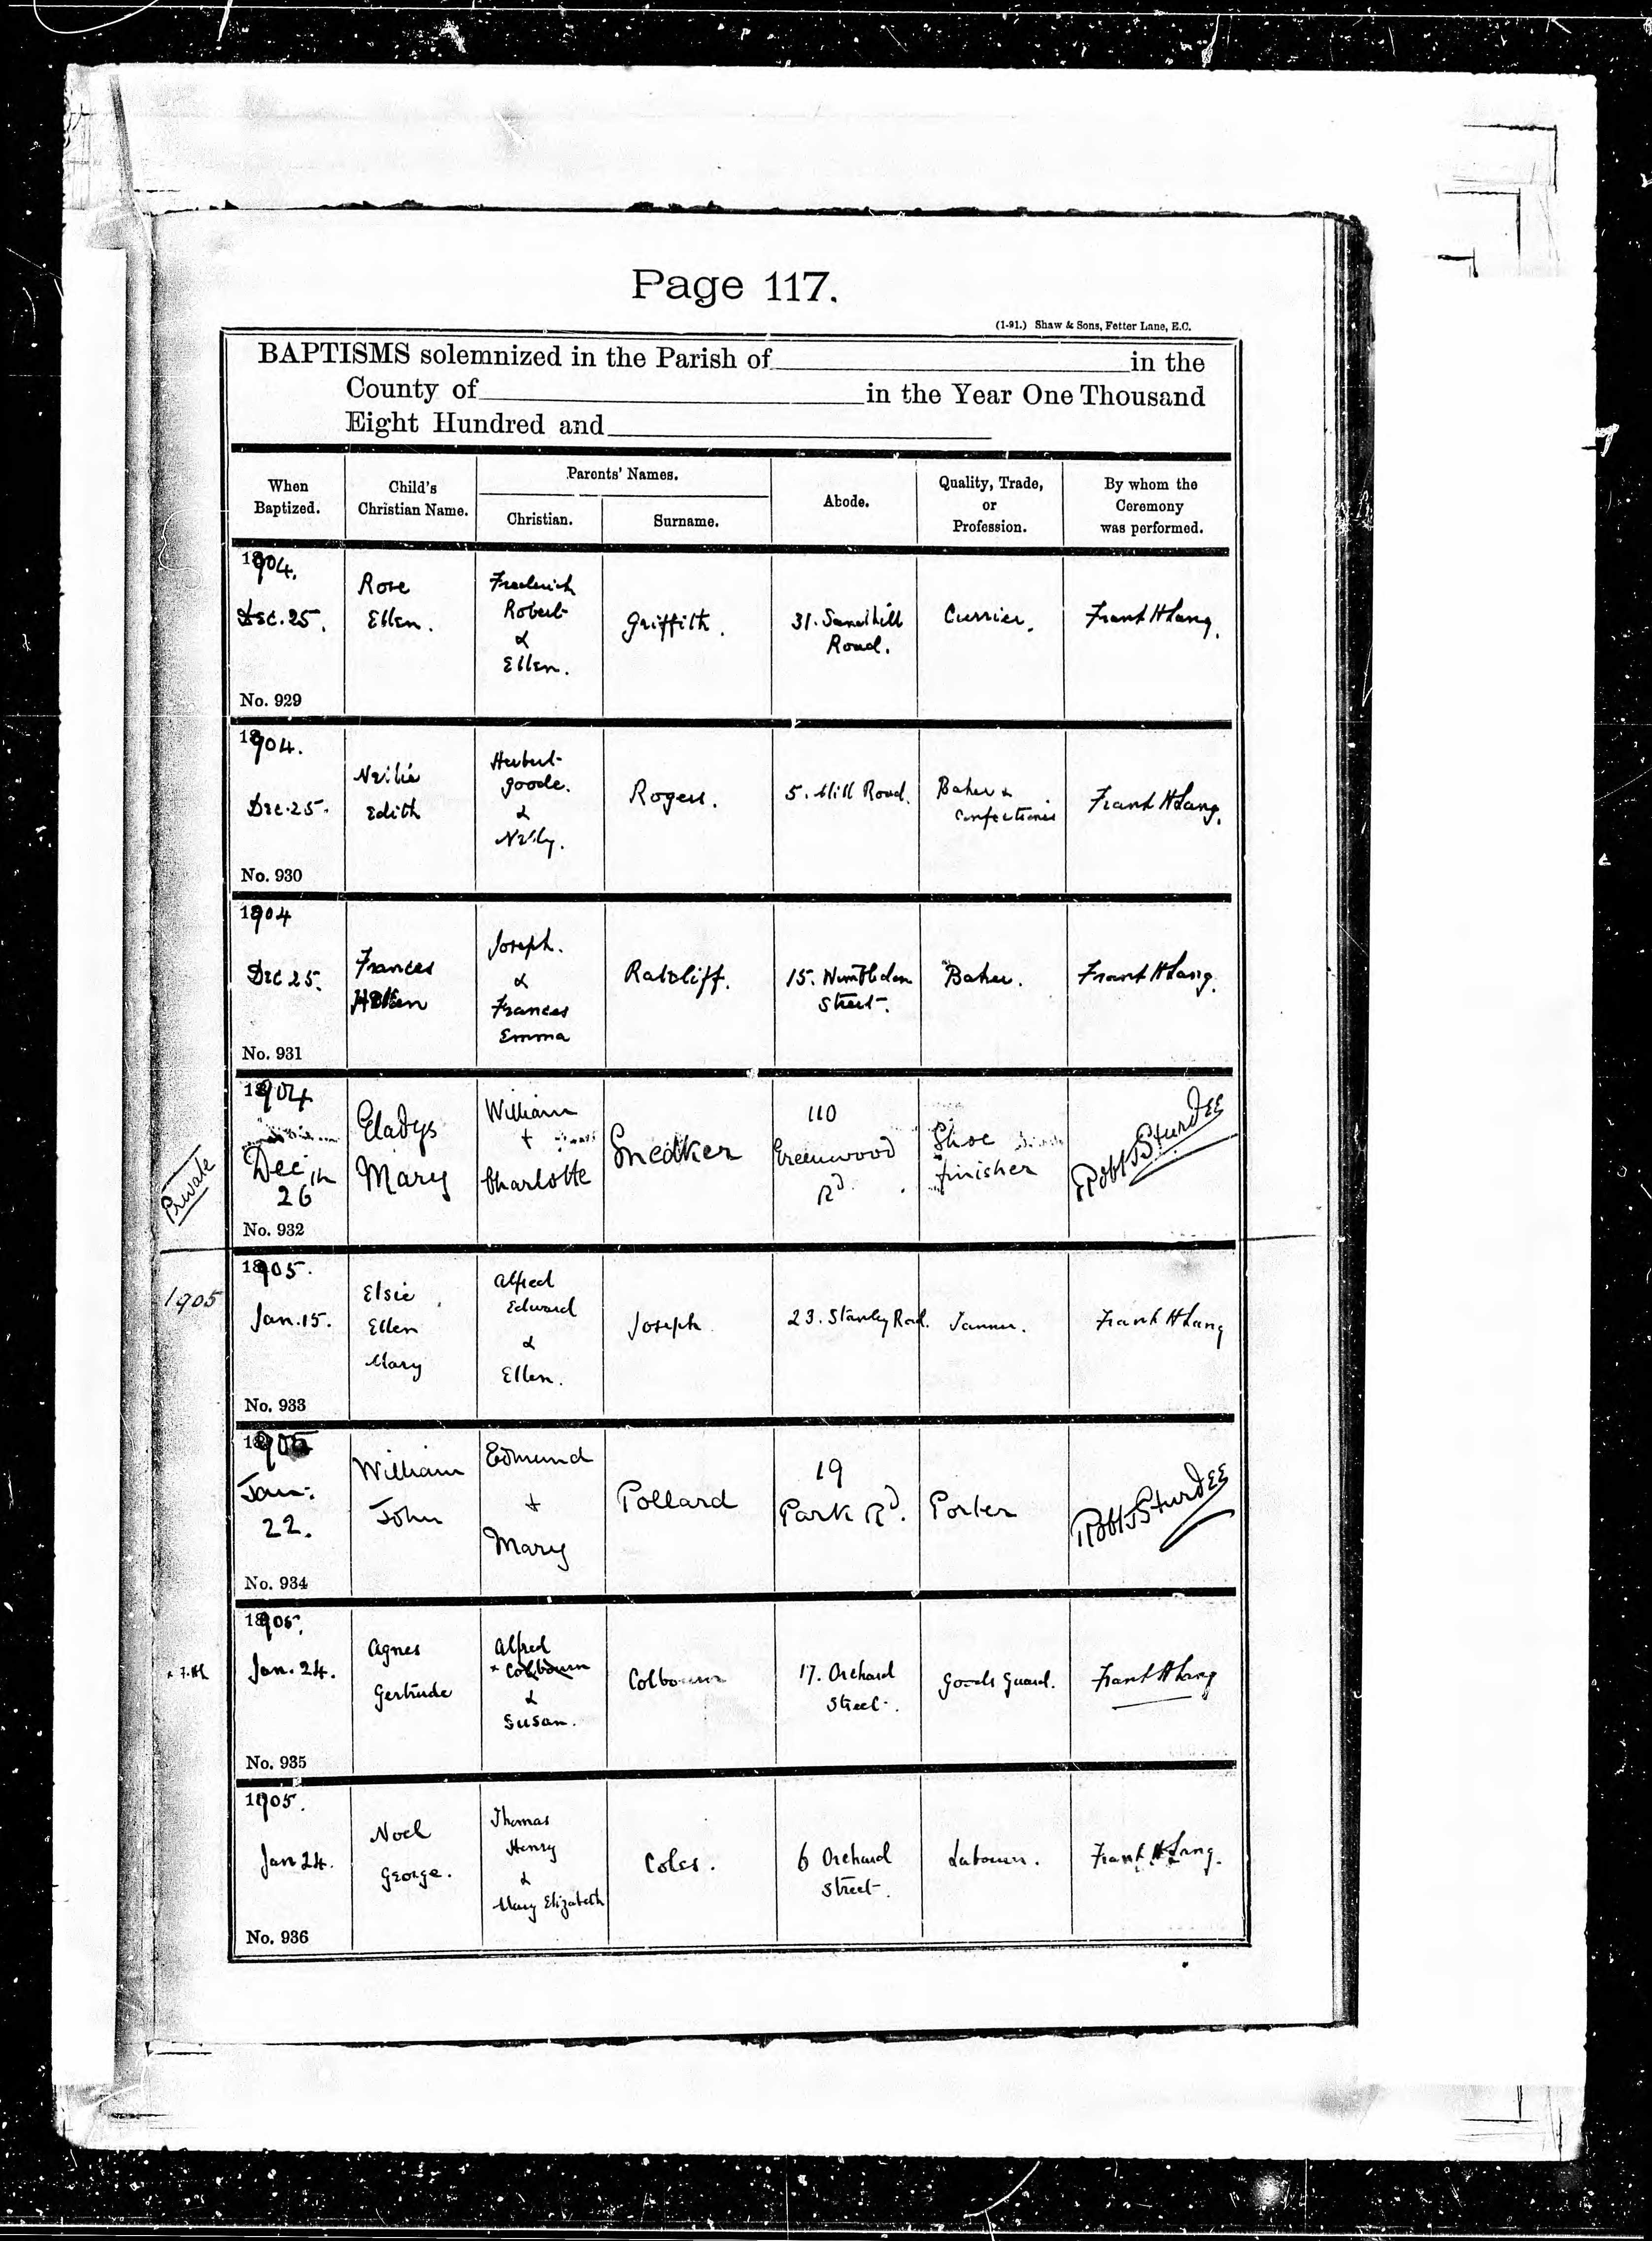 Page 117.
(1-91.) Shaw & Sons, Fetter Lane, E.C.
BAPTISMS solemnized in the Parish of in the
County of in the Year One Thousand
Eight Hundred and
When Baptized.
Child's Christian Name.
Parents' Names.
Christian.
Surname.
Abode.
Quality, Trade, or Profession.
By whom the Ceremony was performed.
1904.
Dec. 25.
No. 929
Rose
Ellen.
Frederick
Robert
&
Ellen.
Griffith.
31. Sandhill
Road.
Currier.
Frank H Lang.
1904.
Dec. 25.
No. 930
Nellie
Edith
Herbert
Goode.
&
Nelly.
Rogers.
5. Mill Road.
Baker &
Confectioner
Frank H Lang.
1904
Dec 25.
No. 931
Frances
Joseph.
&
Frances
Emma
Ratcliff.
15. Wimbledon
Street.
Baker.
Frank H Lang.
Private
1904
Dec
26th
No. 932
Gladys
Mary
William
+
Charlotte
Snedker
110
Greenwood
Rd.
Shoe
finisher
Robt J Sturdee
1905
1905.
Jan. 15.
No. 933
Elsie
Ellen
Mary
Alfred
Edward
&
Ellen.
Joseph
23. Stanley Road.
Tanner.
Frank H Lang
1905
Jan:
22.
No. 934
William
John
Edmund
+
Mary
Pollard
19
Park Rd.
Porter
Robt J Sturdee
1905.
Jan. 24.
No. 935
Agnes
Gertrude
Alfred
× Colbourn
&
Susan.
Colbourn
17. Orchard
Street.
Goods Guard.
Frank H Lang
1905.
Jan 24.
No. 936
Noel
George.
Thomas
Henry
&
Mary Elizabeth
Coles.
6 Orchard
Street.
Labourer.
Frank H Lang.